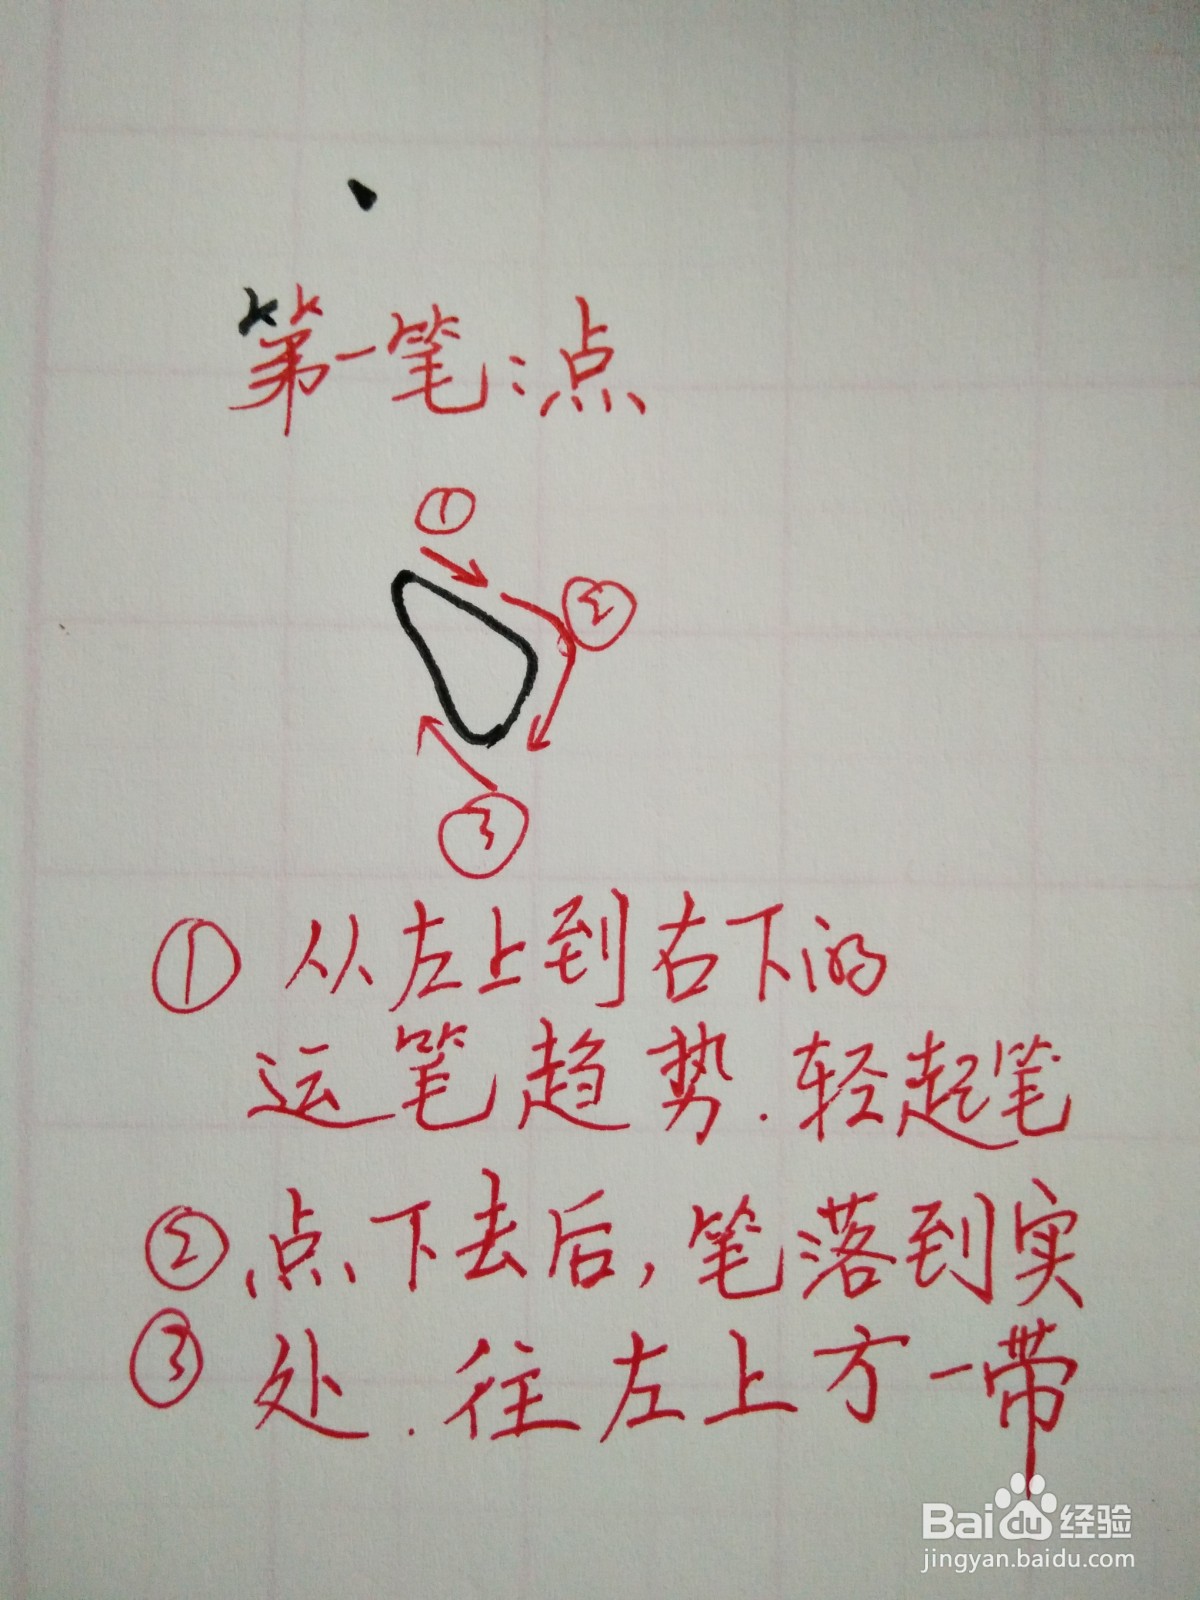 第一笔:点
①
②
③
① 从左上到右下的
运笔趋势.轻起笔
② 点下去后,笔落到实
③ 处.往左上方一带
Baidu经验
jingyan.baidu.com